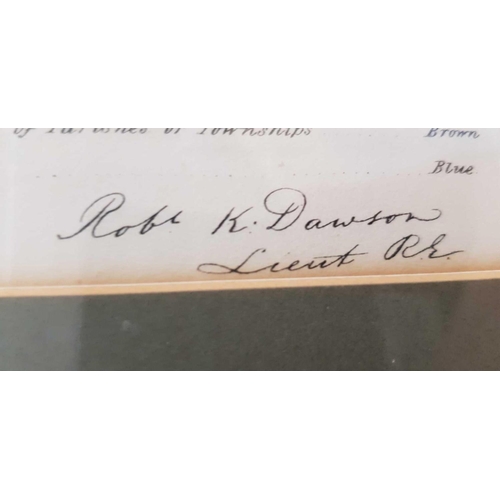 of Parishes or Townships Brown
Blue
Robt K. Dawson
Lieut R.E.